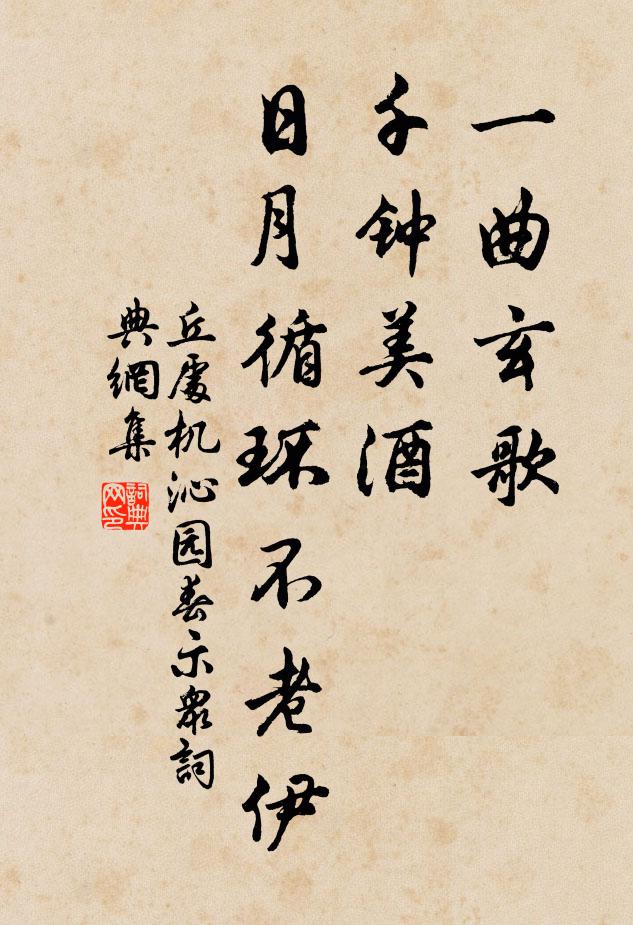 一曲玄歌
千钟美酒
日月循环不老伊
丘處机沁园春示衆詞
典網集
詞典网印